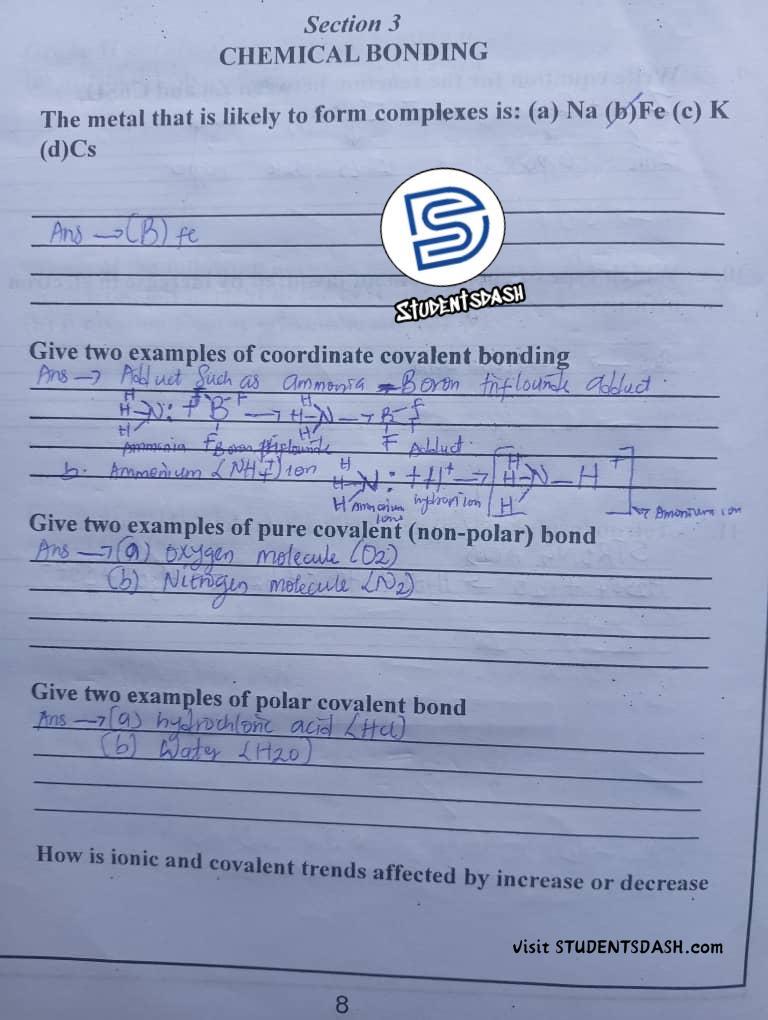 Section 3
CHEMICAL BONDING
The metal that is likely to form complexes is: (a) Na (b) Fe (c) K
(d)Cs
Ans → (B) fe
STUDENTSDASH
Give two examples of coordinate covalent bonding
Ans → Adduct such as ammonia - Boron trifluoride adduct.
H F F H F
H-N: + B → H-N → B-F
H F H F
Ammonia Boron trifluoride Adduct.
b. Ammonium (NH4+) ion H H +
H-N: + H+ → [H-N-H]
H H
hydrogen ion
Give two examples of pure covalent (non-polar) bond
Ans → (a) Oxygen molecule (O2)
(b) Nitrogen molecule (N2)
Give two examples of polar covalent bond
Ans → (a) hydrochloric acid (Hcl)
(b) Water (H2O)
How is ionic and covalent trends affected by increase or decrease
Visit STUDENTSDASH.com
8